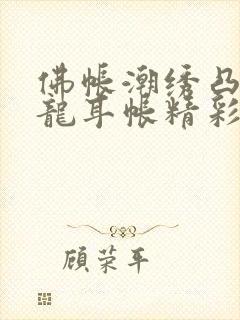 佛帐潮绣凸
龍耳帐精彩
顾荣平